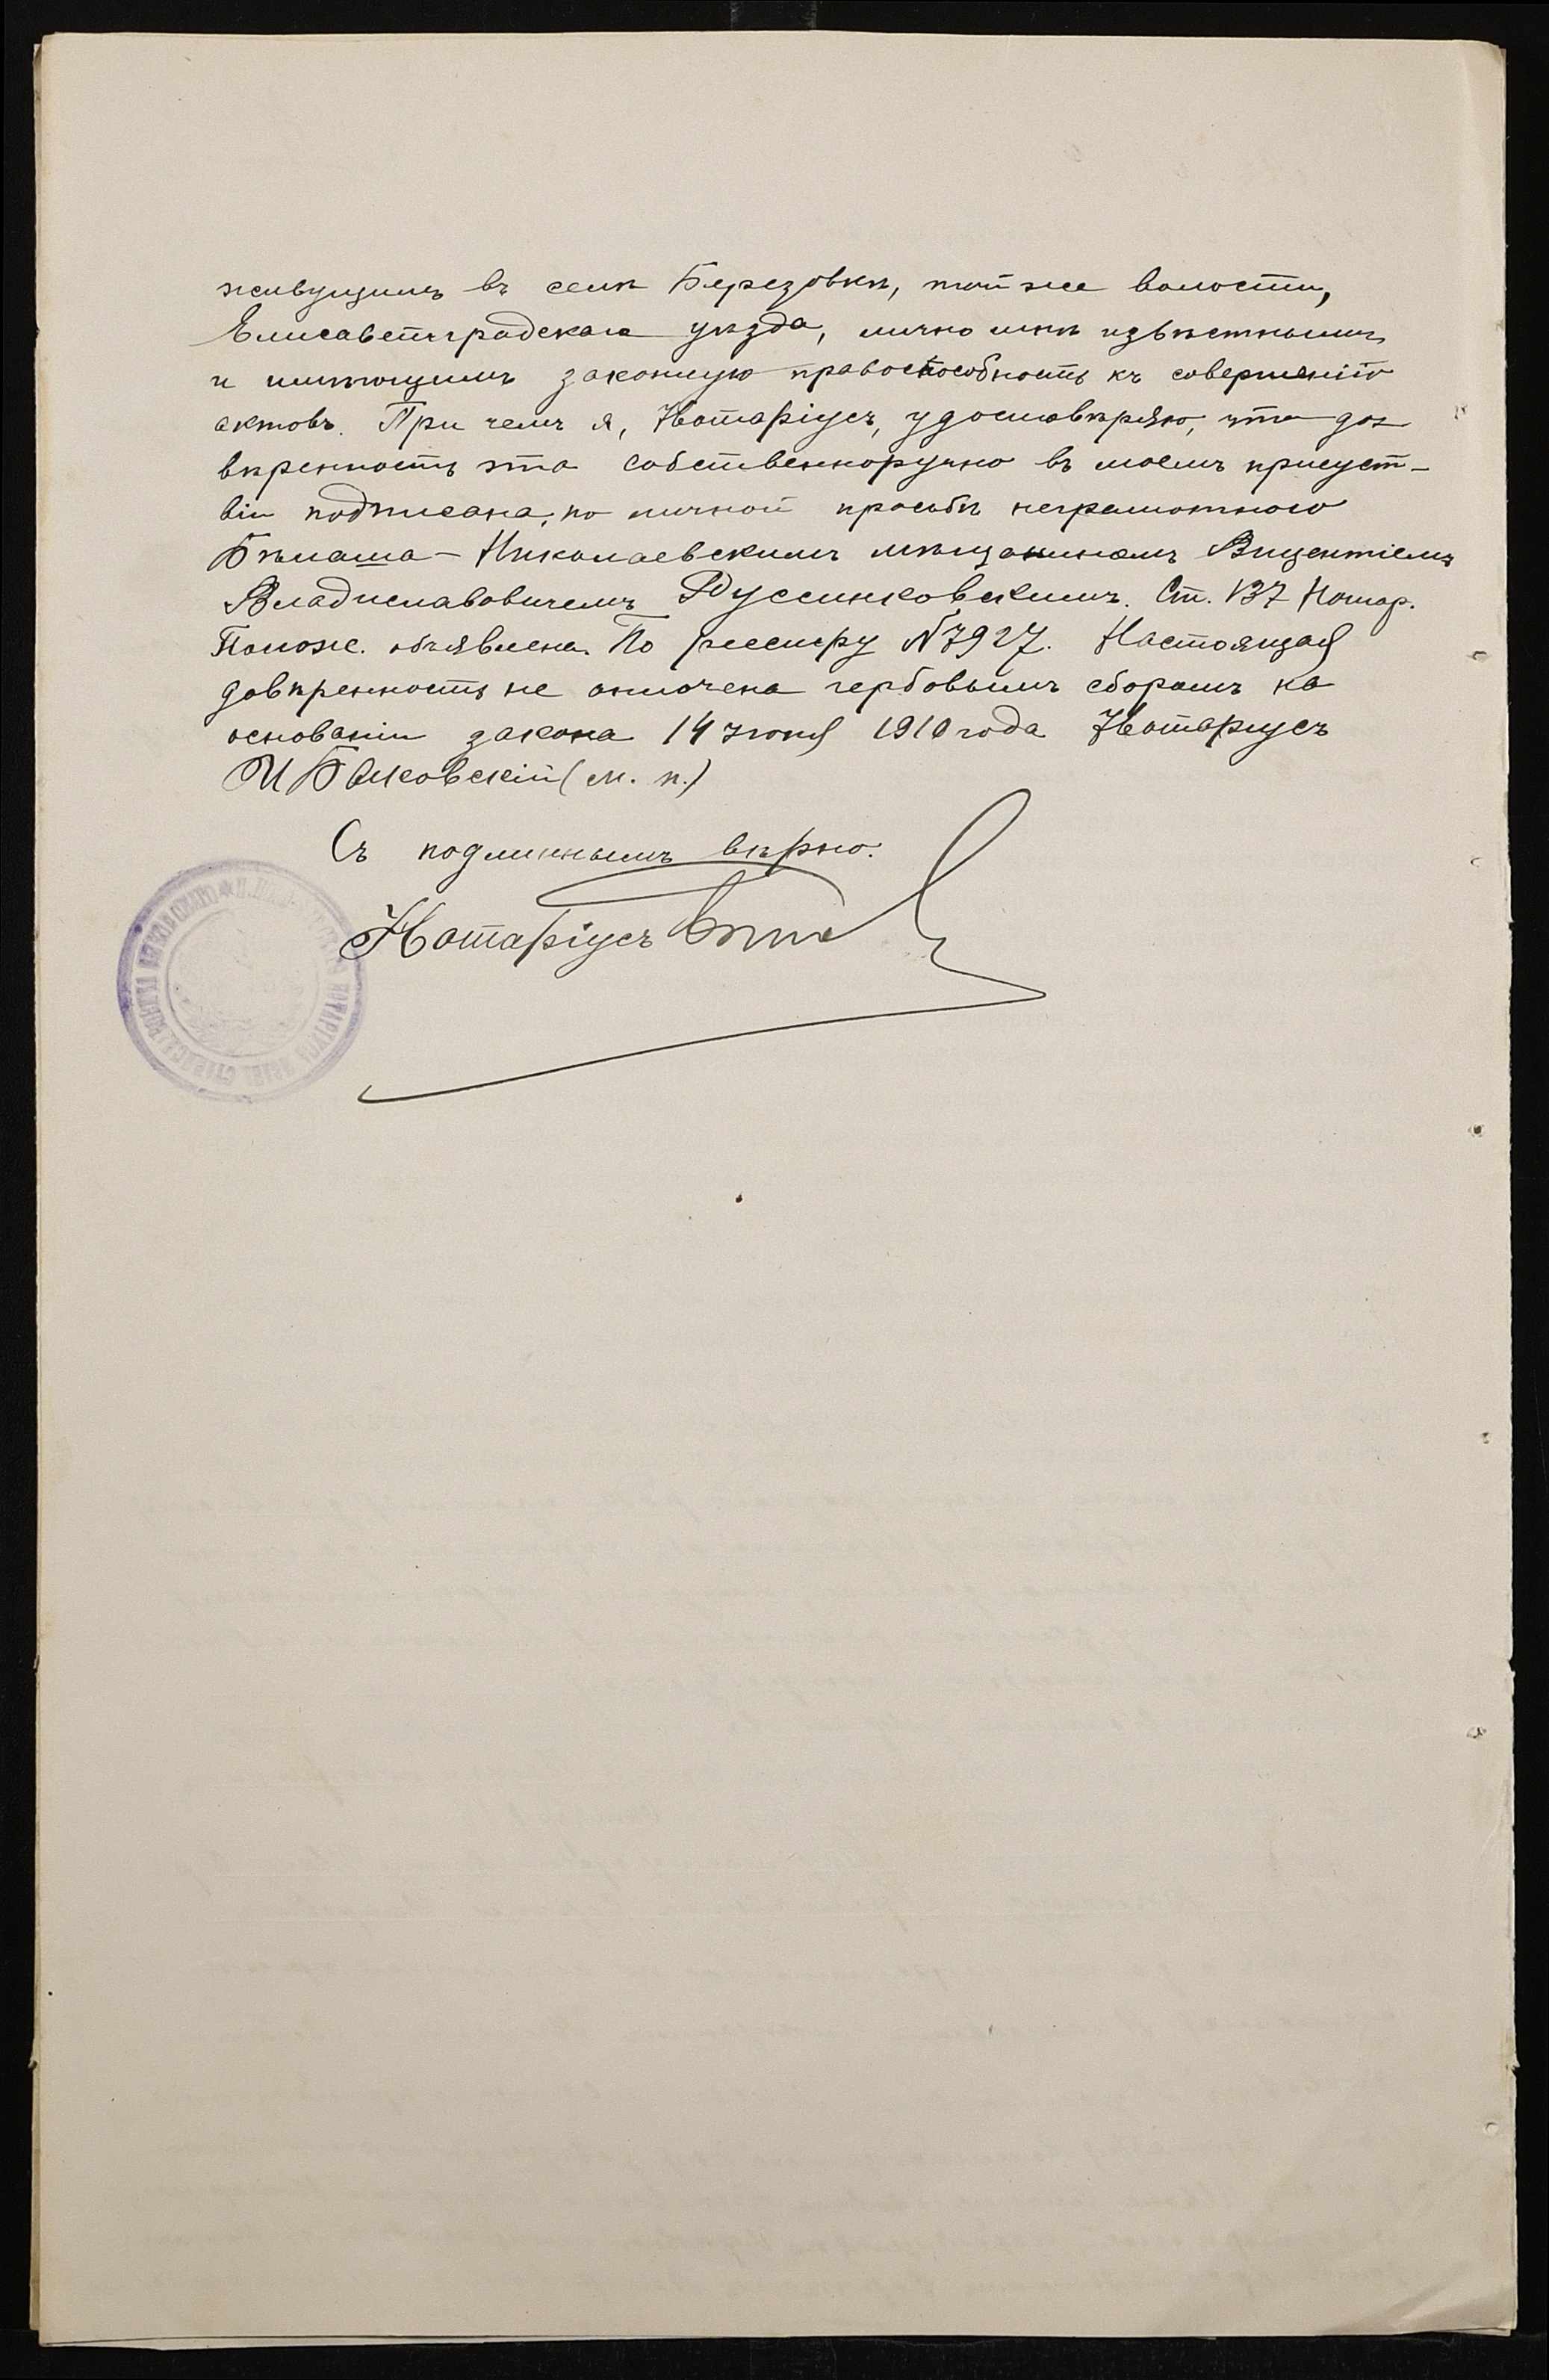 живущимъ въ селѣ Березовкѣ, той же волости,
Елисаветградскаго уѣзда, лично мнѣ извѣстнымъ
и имѣющимъ законную правоспособность къ совершенію
актовъ. При чемъ я, Нотаріусъ, удостовѣряю, что до-
вѣренность эта собственноручно въ моемъ присутст-
віи подписана, по личной просьбѣ неграмотнаго
Бѣлаша - Николаевскимъ мѣщаниномъ Вицентіемъ
Владиславовичемъ Руссинковскимъ. Ст. 137 Нотар.
Полож. объявлена. По реестру №7927. Настоящая
довѣренность не оплачена гербовымъ сборомъ на
основаніи закона 14 Іюня 1910 года Нотаріусъ
И Баковскій (м. п.)
Съ подлиннымъ вѣрно.
Нотаріусъ